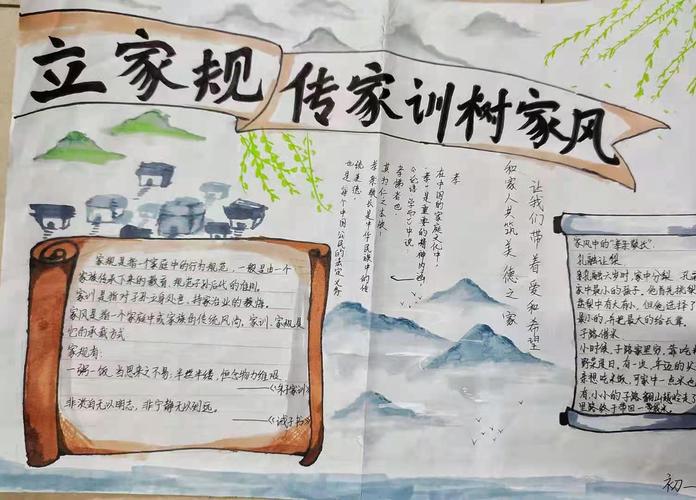 立家规
传家训树家风
家规是指一个家庭中的行为规范，一般是由一个
家族传承下来的教育、规范子孙后代的准则。
家训是指对子孙立身处世、持家治业的教诲。
家风是指一个家庭中或家族的传统风尚，家训、家规是
它的承载方式
家规有：
一粥一饭，当思来之不易；半丝半缕，恒念物力维艰
——《朱子家训》
非淡泊无以明志，非宁静无以致远。
——《诫子书》
孝
在中国的家庭文化中，
"孝"是重要的精神
《论语·学而》中说
孝悌者也，
其为仁之本欤！
孝亲敬长是中华民族中的传
统美德，
也是每个中国公民的法定义务
让我们带着爱和希望
和家人共筑美德之家
家风中的"孝亲敬长"
孔融让梨
孔融六岁时，家中分梨，孔
家中最小的孩子，他首先挑梨
盘梨中有大有小，但他选择了
最小的，并把最大的给长辈。
子路借米
小时候，子路家里穷，靠吃
野菜度日，有一次，年迈的父
春想吃米饭，可家中一点米
有，小小的子路翻山越岭走了
里路，终于带回一带米。
初一